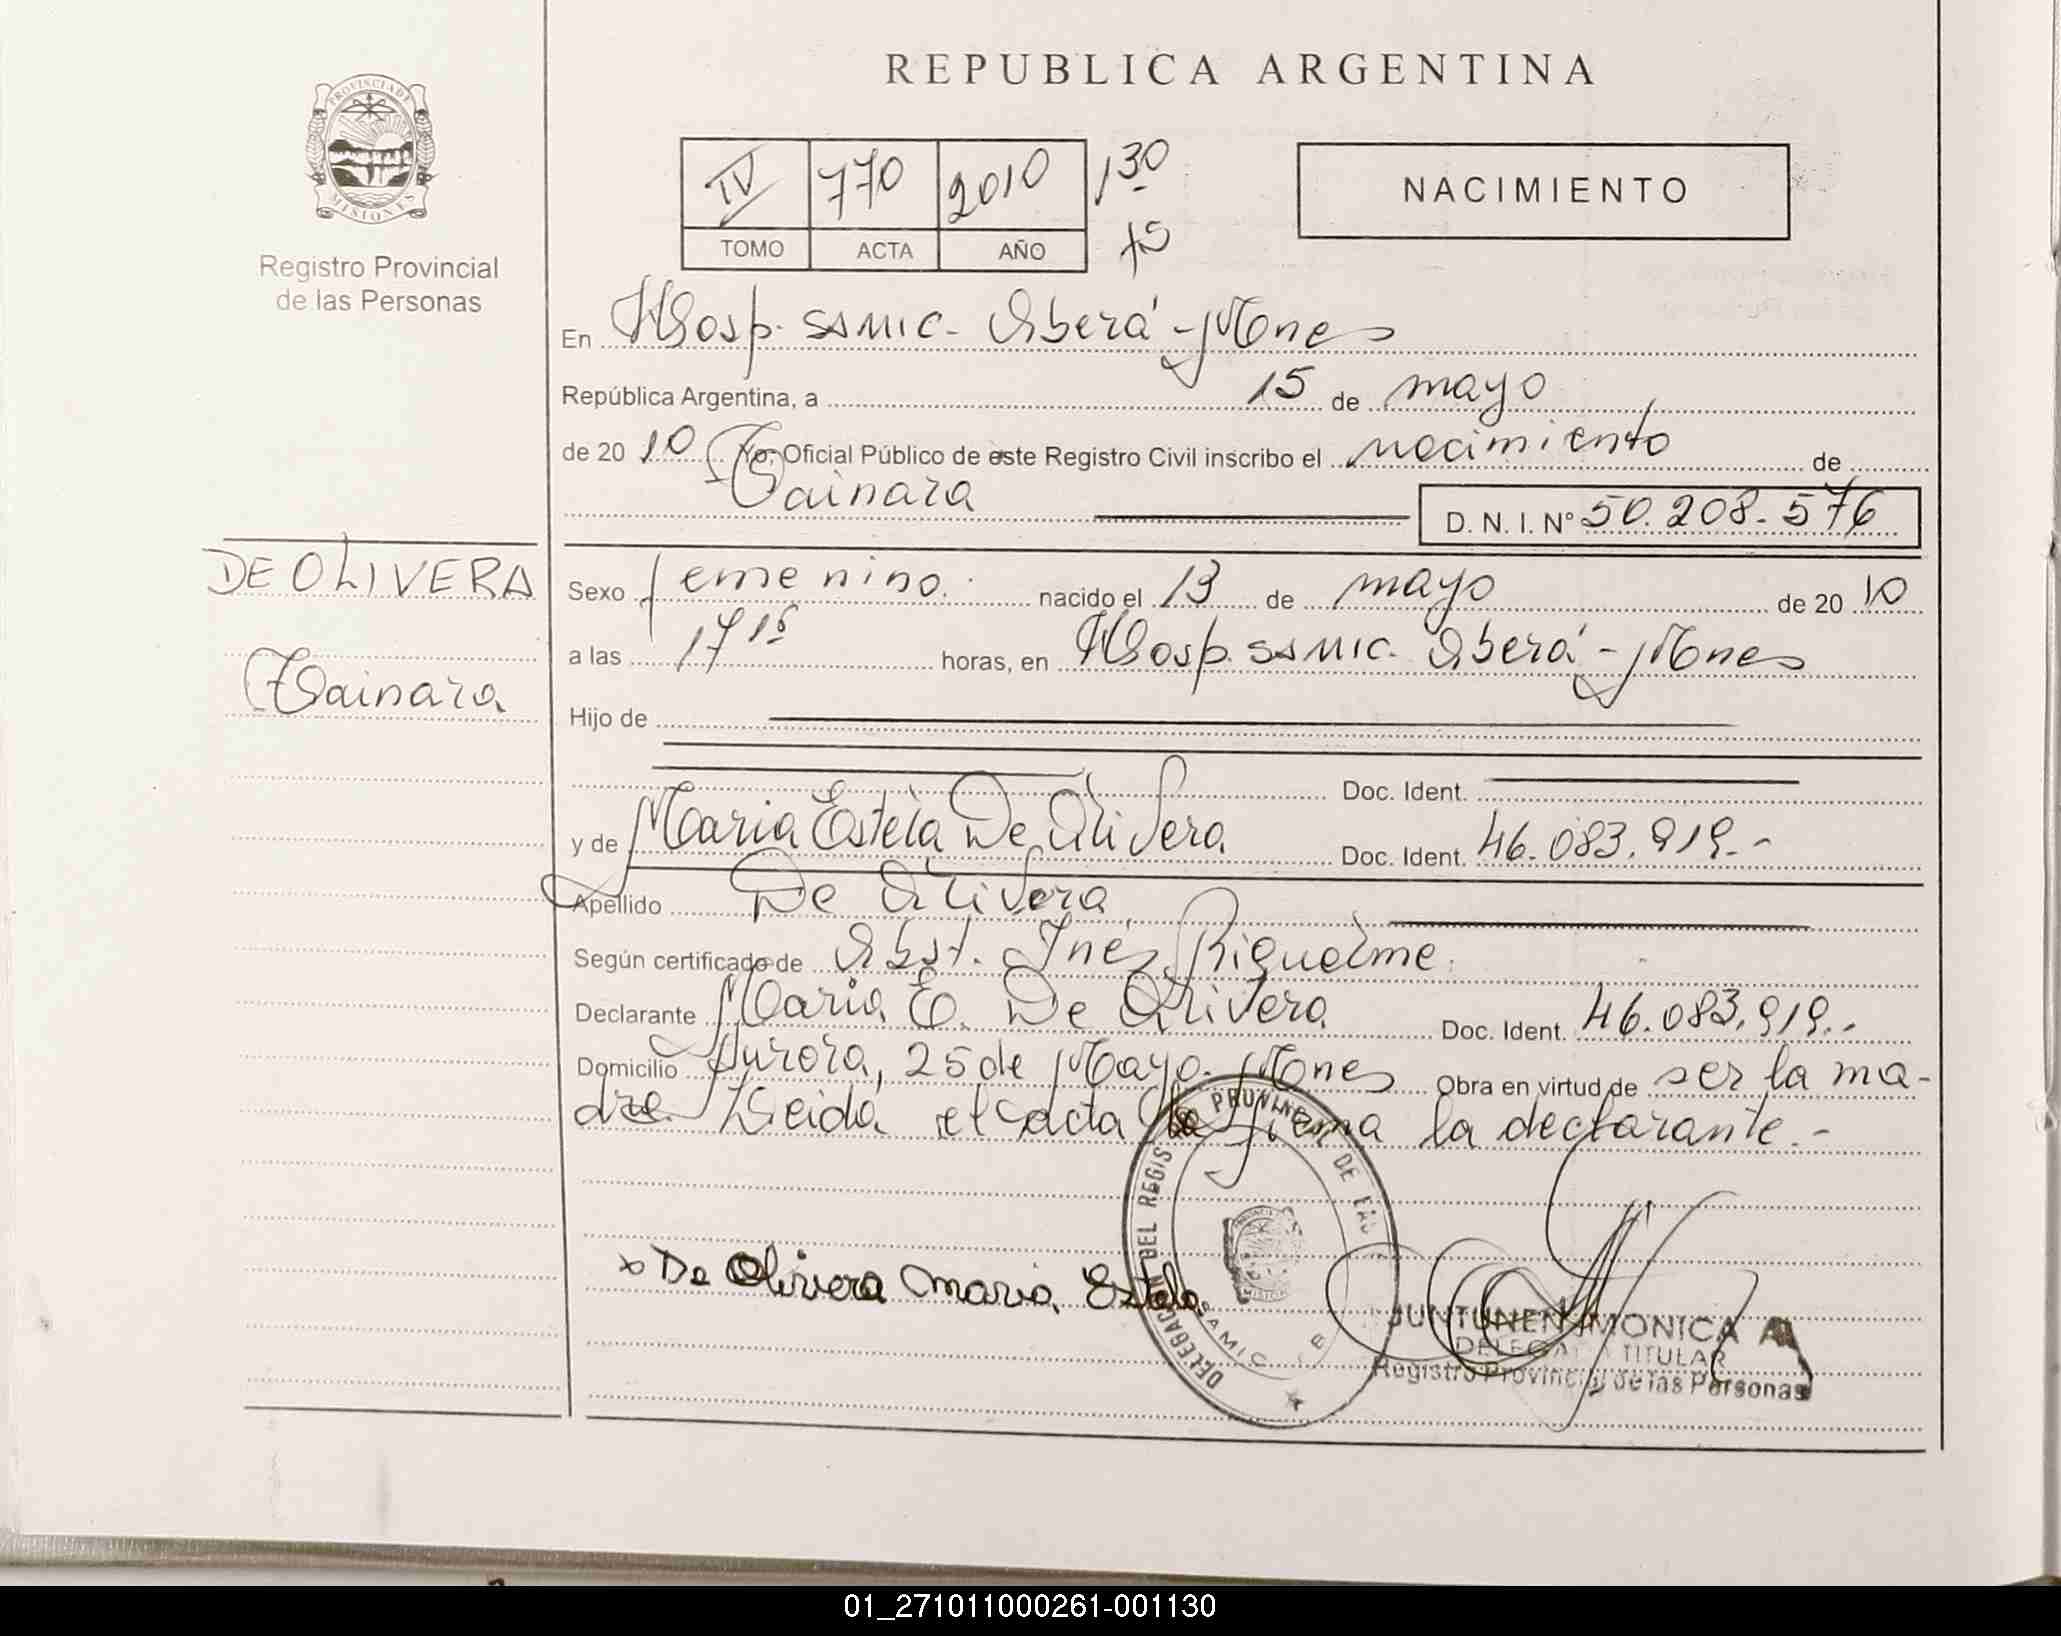 REPUBLICA ARGENTINA
PROVINCIA DE
MISIONES
Registro Provincial
de las Personas
IV 770 2010 130
TOMO ACTA AÑO
NACIMIENTO
En Hosp. SAMIC - Oberá - Mnes
República Argentina, a 15 de mayo
de 20 10 Yo, Oficial Público de este Registro Civil inscribo el nacimiento de
Tainara D. N. I. N° 50.208.576
DE OLIVERA
Tainara
Sexo femenino. nacido el 13 de mayo de 20 10
a las 17 15 horas, en Hosp. SAMIC. Oberá - Mnes
Hijo de
Doc. Ident.
y de Maria Estela De Olivera Doc. Ident. 46.083.919.-
Apellido De Olivera
Según certificado de Obst. Inés Riquelme.
Declarante Maria E. De Olivera Doc. Ident. 46.083.919.-
Domicilio Aurora, 25 de Mayo. Mnes Obra en virtud de ser la ma-
dre. Leida el acta la firma la declarante.-
x De Olivera Maria Estela
DELEGACION DEL REGISTRO PROVINCIAL DE LAS
SAMIC
JUNTUNEN MONICA A
DELEGADA TITULAR
Registro Provincial de las Personas
01_271011000261-001130